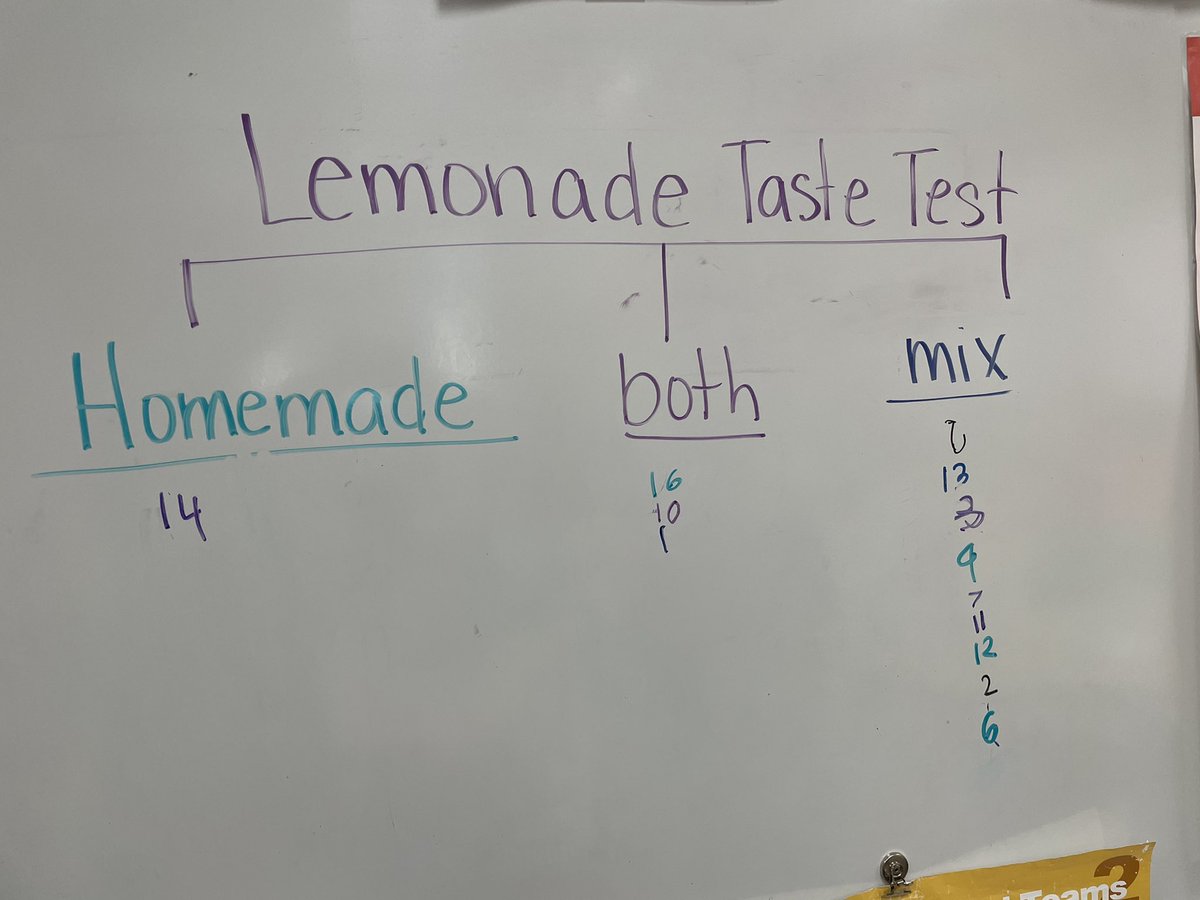 Lemonade Taste Test
Homemade
14
both
16
10
1
mix
13
9
7
11
12
2
6
Teams
2